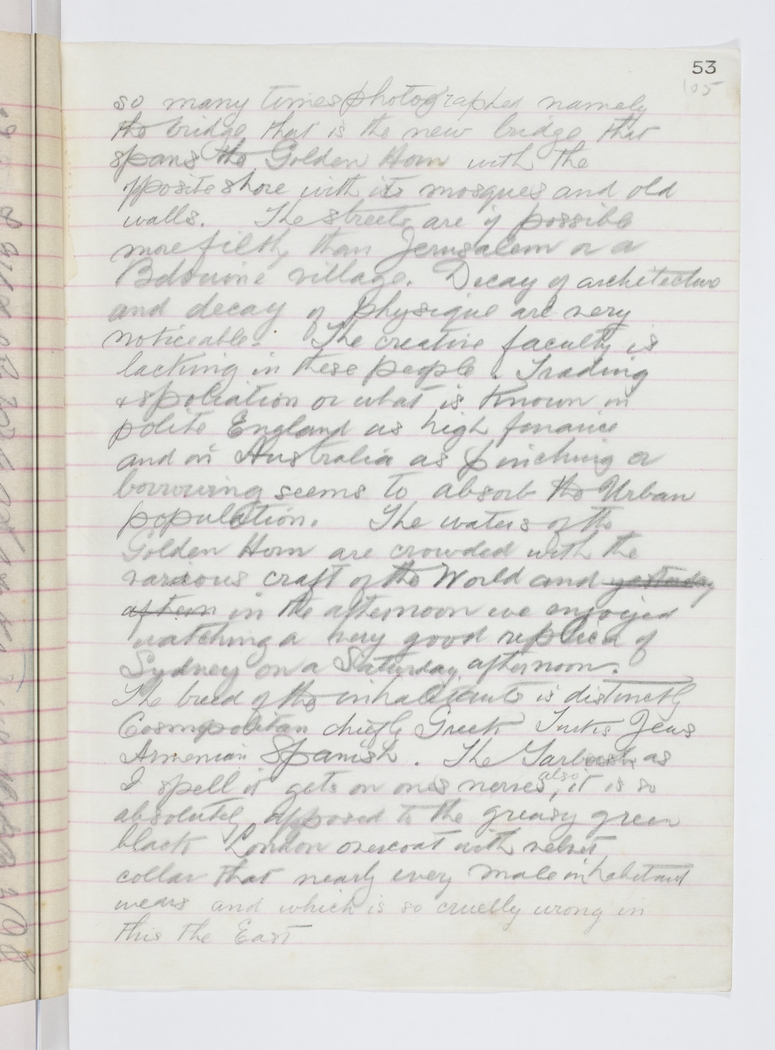 53
105
so many times photographed namely
the bridge that is the new bridge that
spans the Golden Horn with the
opposite shore with its mosques and old
walls. The streets are if possible
more filthy than Jerusalem or a
Bdouine village. Decay of architecture
and decay of physique are very
noticeable. The creative faculty is
lacking in these people. Trading
& spoliation or what is known in
polite England as high finance
and in Australia as pinching or
borrowing seems to absorb the Urban
population. The waters of the
Golden Horn are crowded with the
various craft of the World and yesterday
aftern in the afternoon we enjoyed
watching a very good replica of
Sydney on a Saturday afternoon.
The breed of the inhabitants is distinctly
Cosmopolitan chiefly Greek Turks Jews
Armenian Spanish. The Tarbosh as
I spell it gets on ones nerves also, it is so
absolutely opposed to the greasy green
black London overcoat with velvet
collar that nearly every male inhabitant
wears and which is so cruelly wrong in
this the East